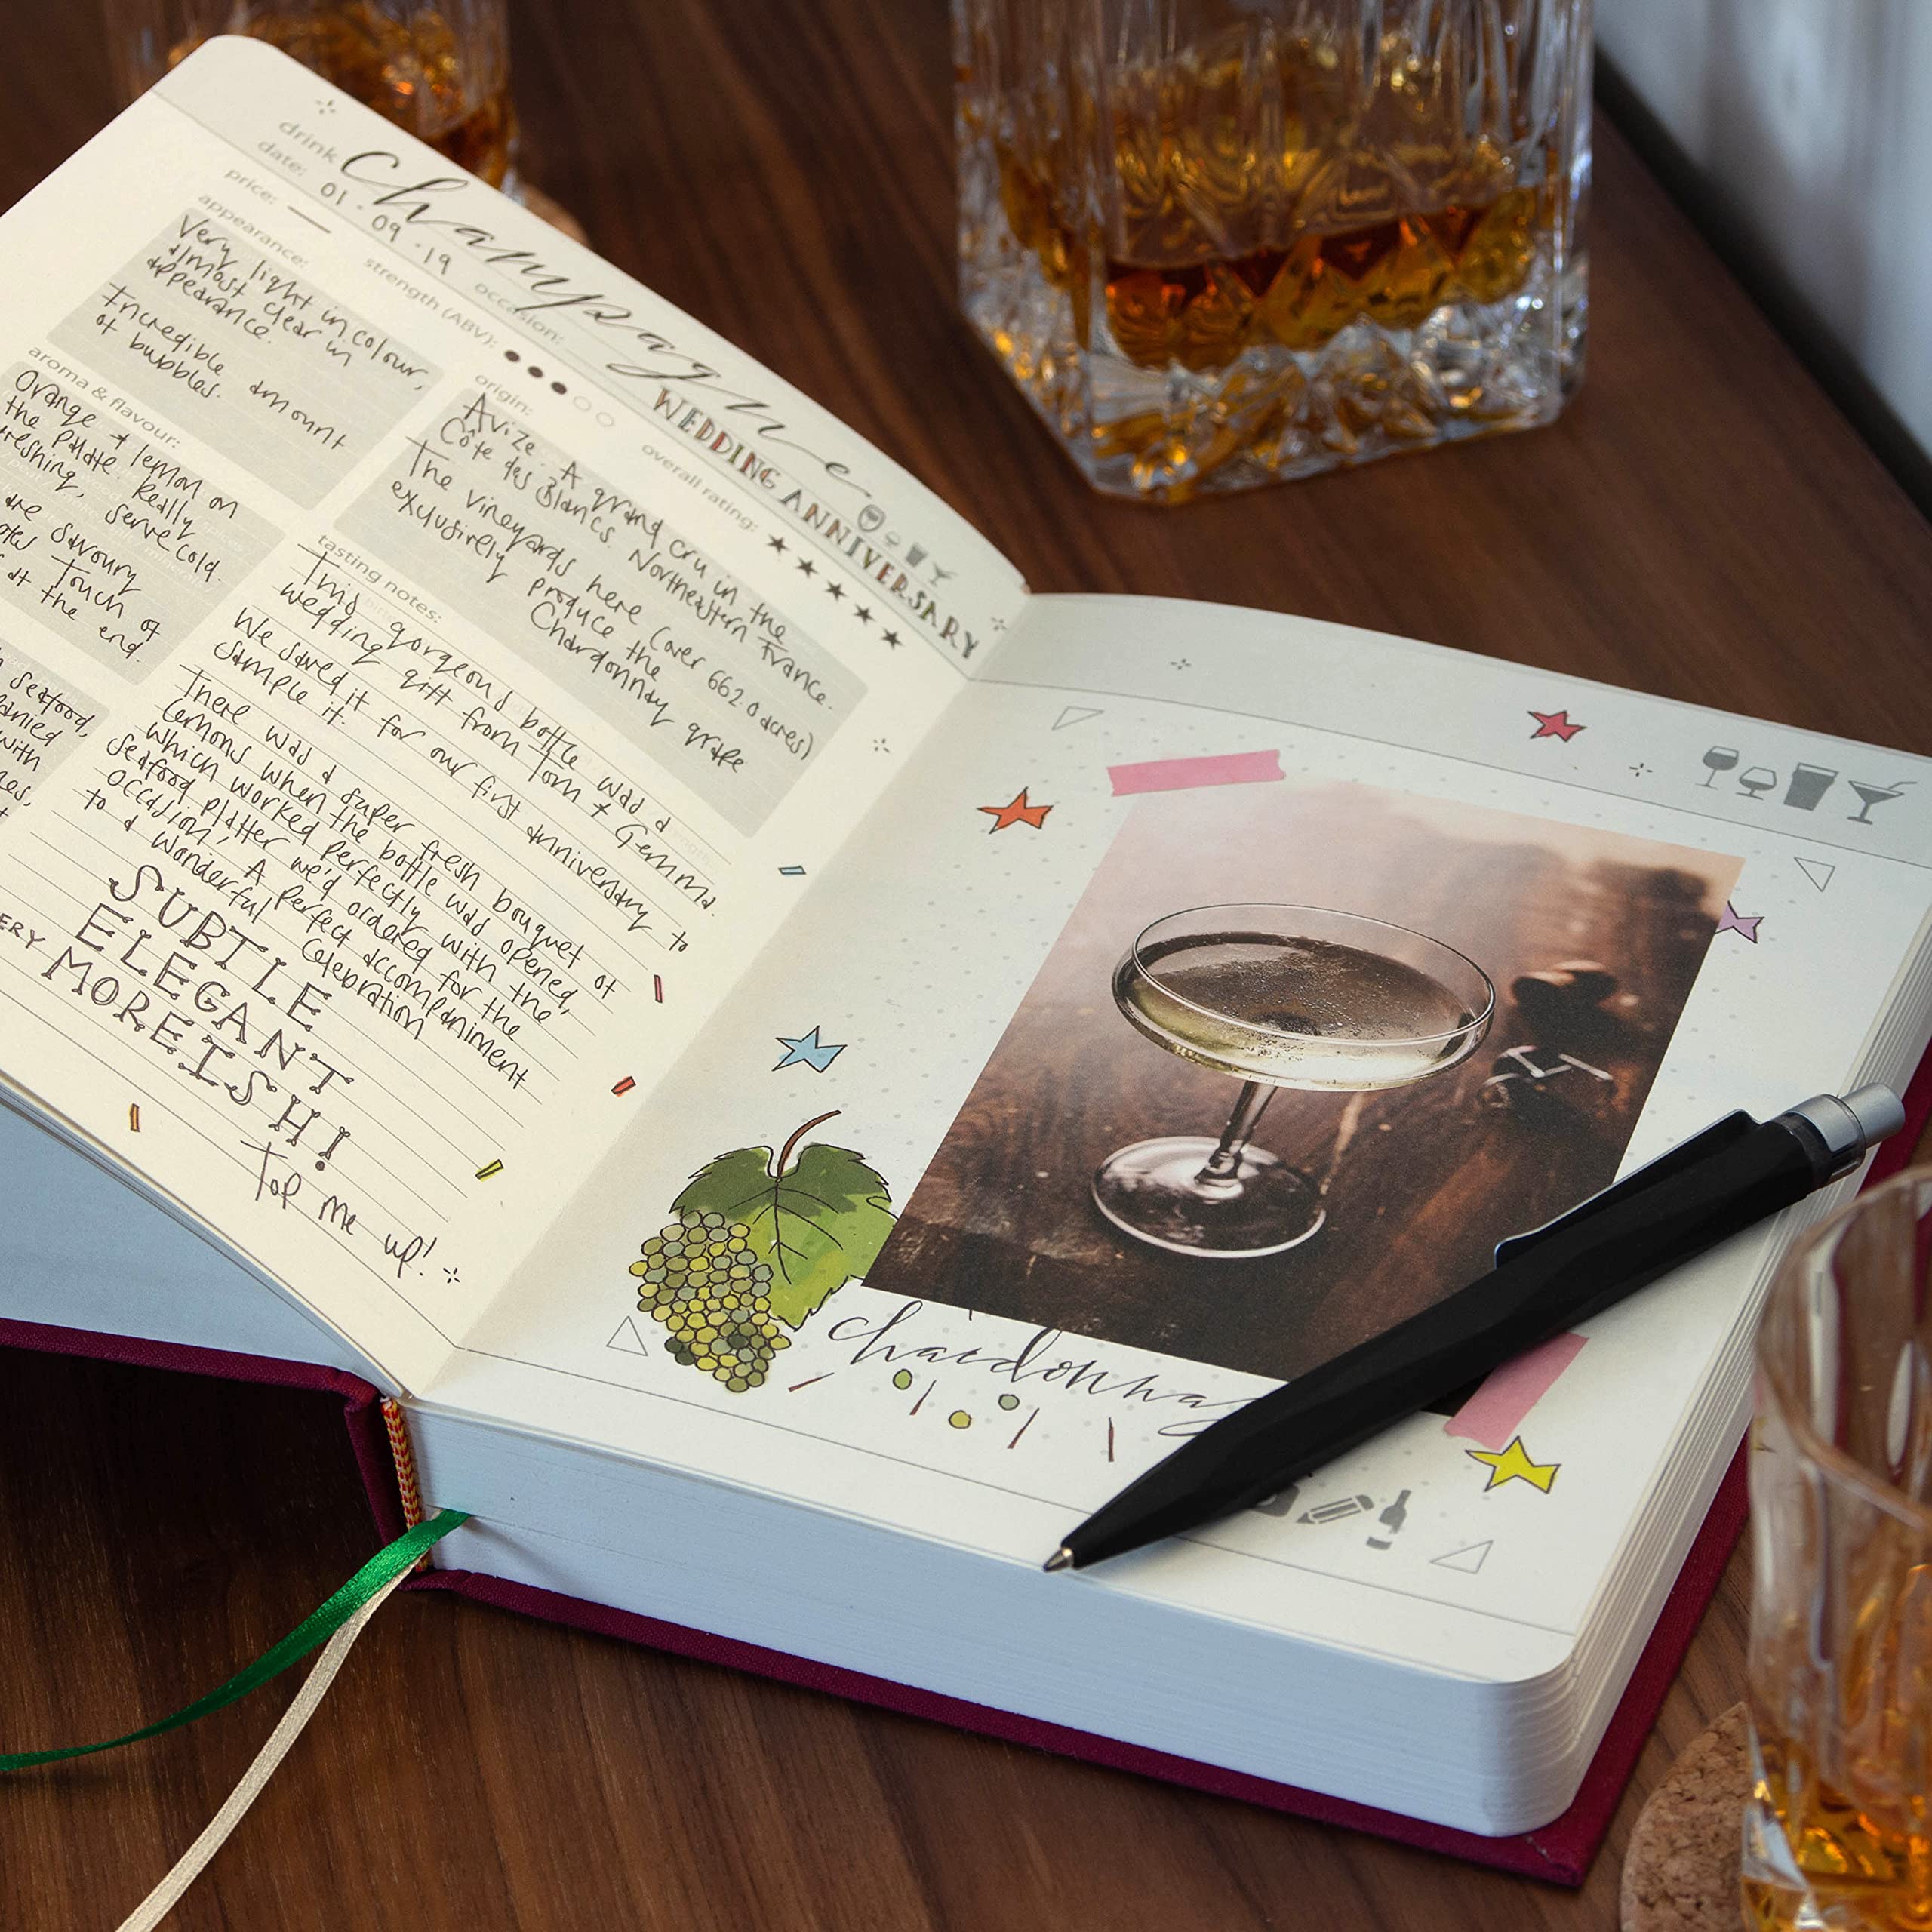 drink Champagne
date: 01-09-19 occasion: WEDDING ANNIVERSARY
price: — strength (ABV): overall rating: ★★★★★
appearance:
Very light in colour,
almost clear in
appearance.
Incredible amount
of bubbles.
origin:
Avize. A grand cru in the
Côte des Blancs. Northeastern France.
The vineyards here (over 662.0 acres)
exclusively produce the
Chardonnay grape
aroma & flavour:
Orange + lemon on
the palate. Really
serve cold.
are savoury
Touch of
at the end.
seafood,
with
tasting notes:
This gorgeous bottle was a
wedding gift from Tom + Gemma.
We saved it for our first anniversary to
sample it.
There was a super fresh bouquet of
lemons when the bottle was opened,
which worked perfectly with the
seafood platter we'd ordered for the
occasion; A perfect accompaniment
to a wonderful celebration
SUBTLE
ELEGANT
MOREISH!
Top me up!
chardonnay